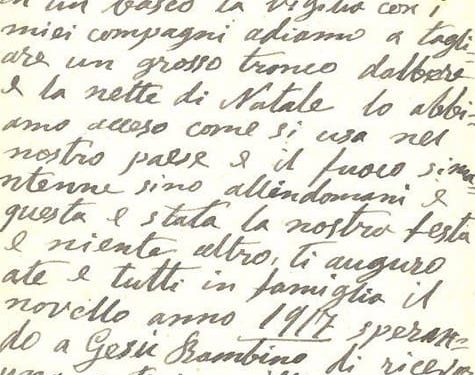 in un basco la vigilia con i
miei compagni adiamo a tagli-
are un grosso tronco dalbere
e la nette di Natale lo abbi-
amo acceso come si usa nel
nostro paese e il fuoco sima
ntenne sino allindomani e
questa e stata la nostra festa
e niente altro, ti auguro
ate e tutti in famiglia il
novello anno 1917 speran-
do a Gesù Bambino di ricever